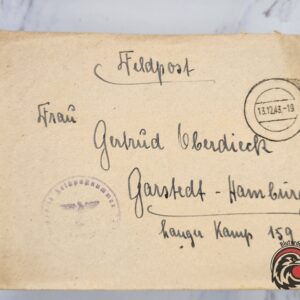 Feldpost
13.12.43.-19
Frau
Gertrud Oberdieck
Garstedt - Hamburg
Langer Kamp 159